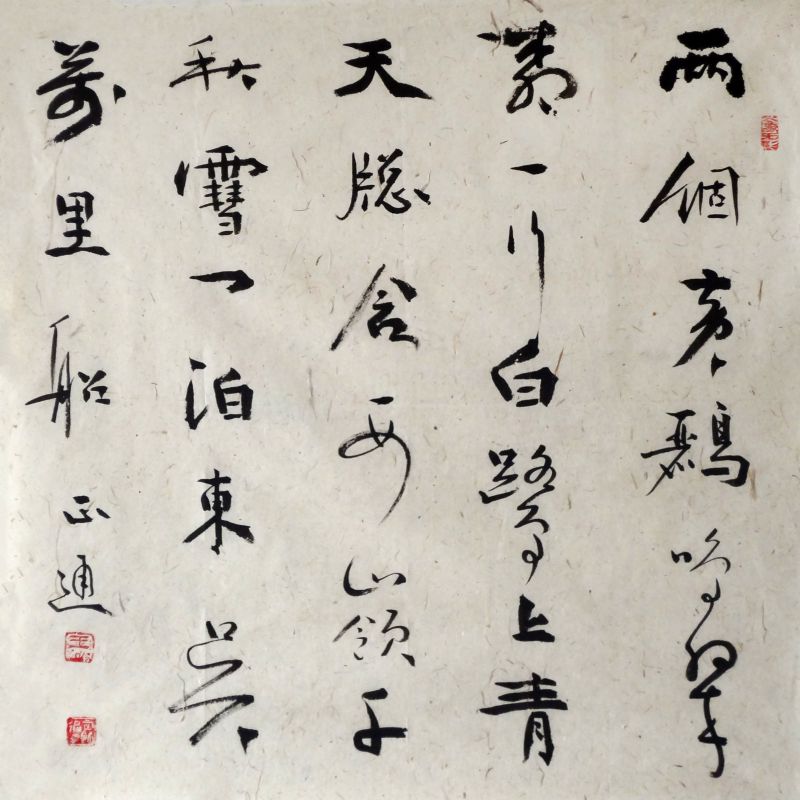 兩個黃鸝鳴翠
柳一行白鷺上青
天牕含西嶺千
秋雪門泊東吳
萬里船 正通